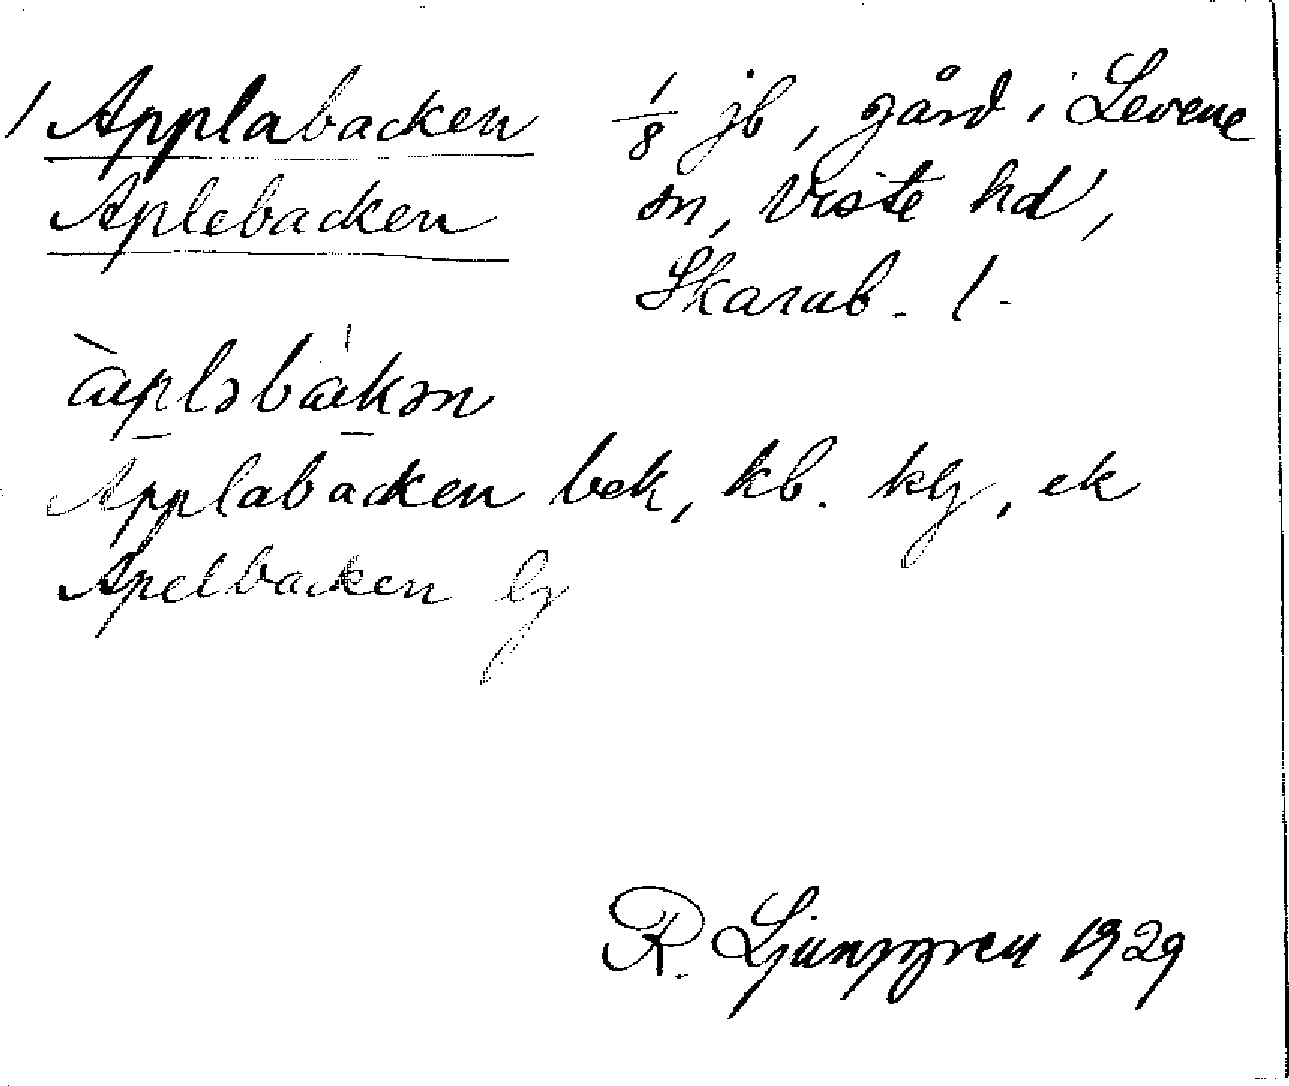 1 Applabacken 1/8 jb, gård i Levene
Aplebacken sn, Viste hd,
Skarab. l.
àpləbákən
Applabacken bek, kb. klj, ek
Apelbacken lj
R. Ljunggren 1929